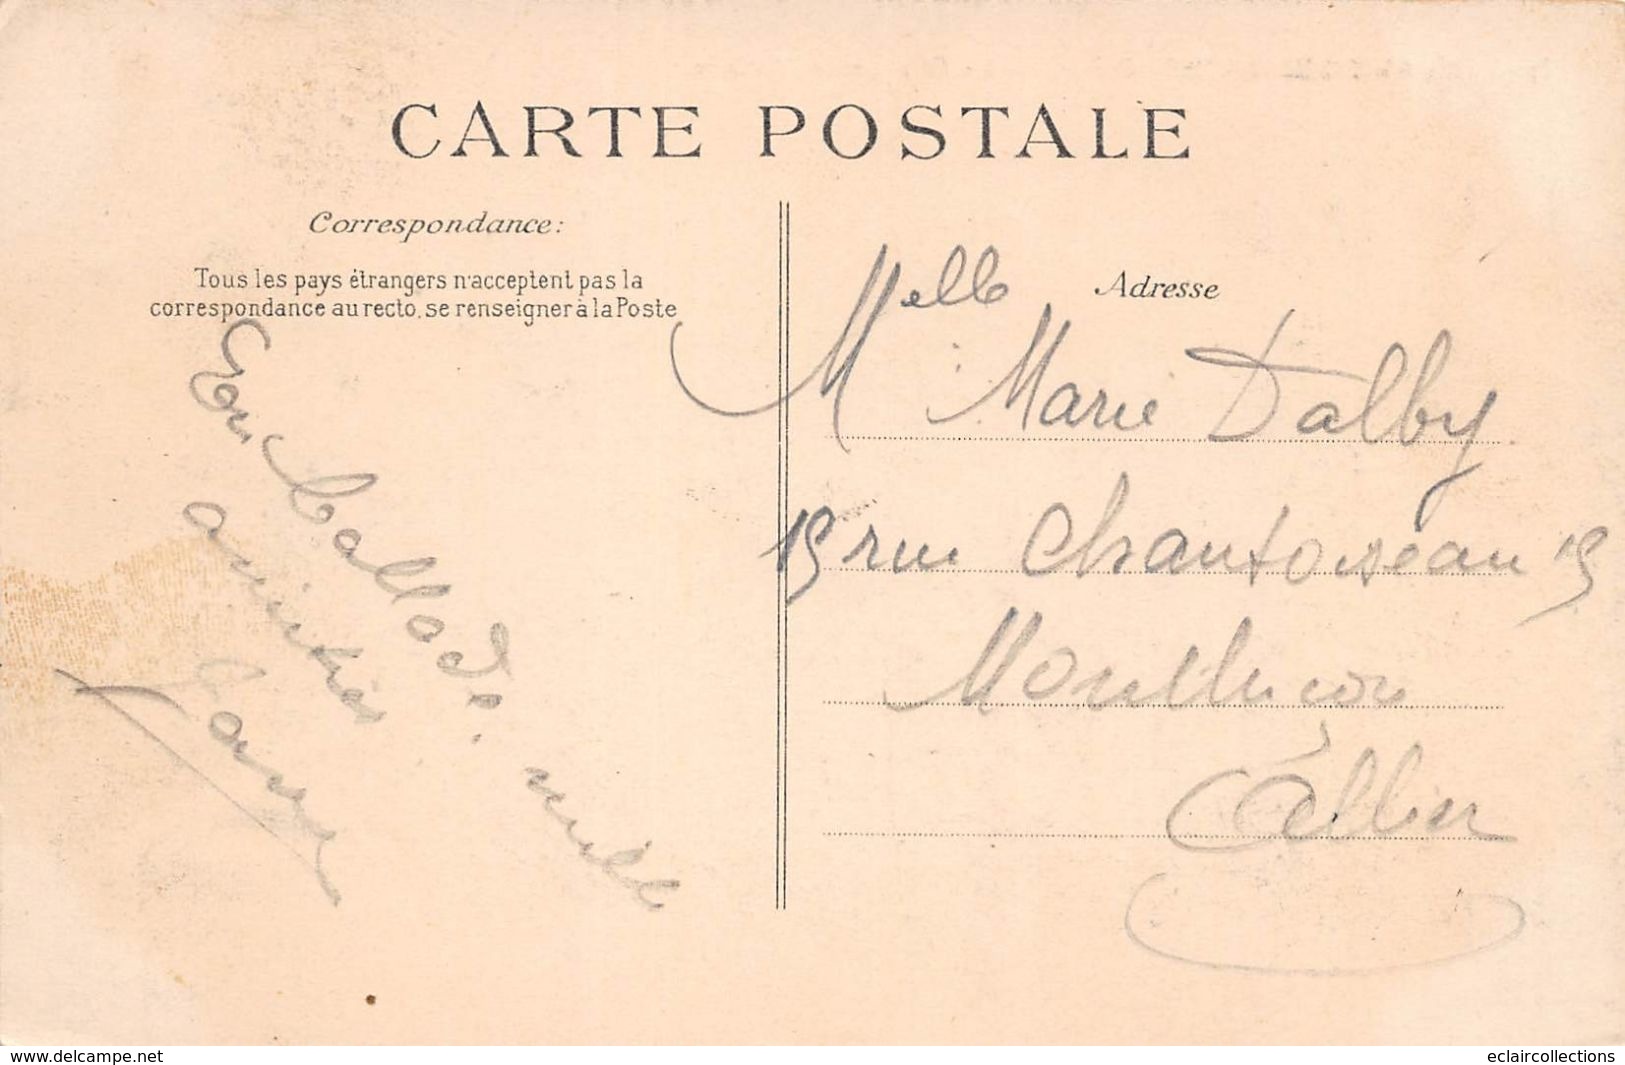 CARTE POSTALE
Correspondance:
Tous les pays étrangers n'acceptent pas la
correspondance au recto, se renseigner à la Poste
Adresse
Melle
Marie Dalby
15 rue Chantoiseau 15
Montluçon
Allier
mille
amitiés
www.delcampe.net
eclaircollections